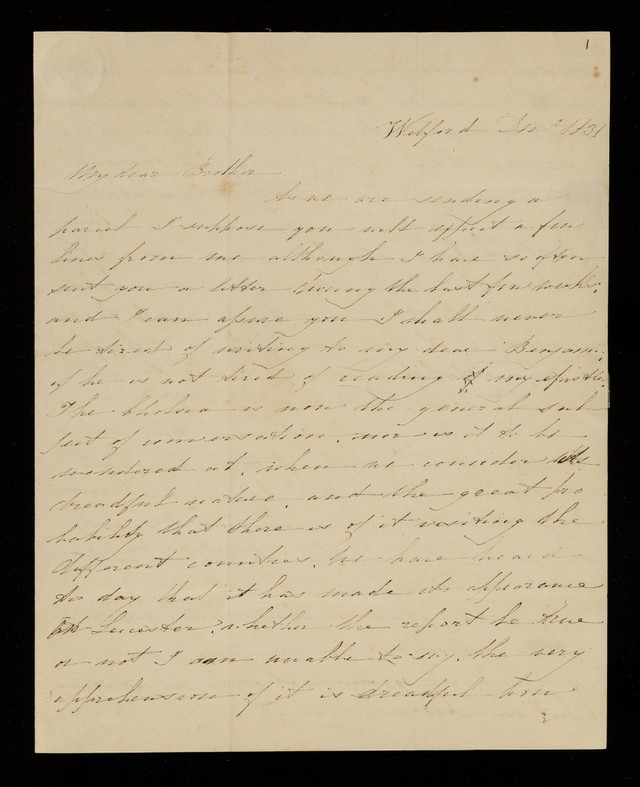 1
Welford Dec 1831
My dear Brother
As we are sending a
parcel I suppose you will expect a few
lines from me although I have so often
sent you a letter during the last few weeks,
and I can assure you I shall never
be tired of writing to my dear Benjamin,
if he is not tired of reading my epistles.
The Cholera is now the general sub
ject of conversation, nor is it to be
wondered at, when we consider its
dreadful nature, and the great pro
bability that there is of it visiting the
different counties. We have heard
to day that it has made its appearance
Leicester, whether the report be true
or not I am unable to say, the very
apprehension of it is dreadful